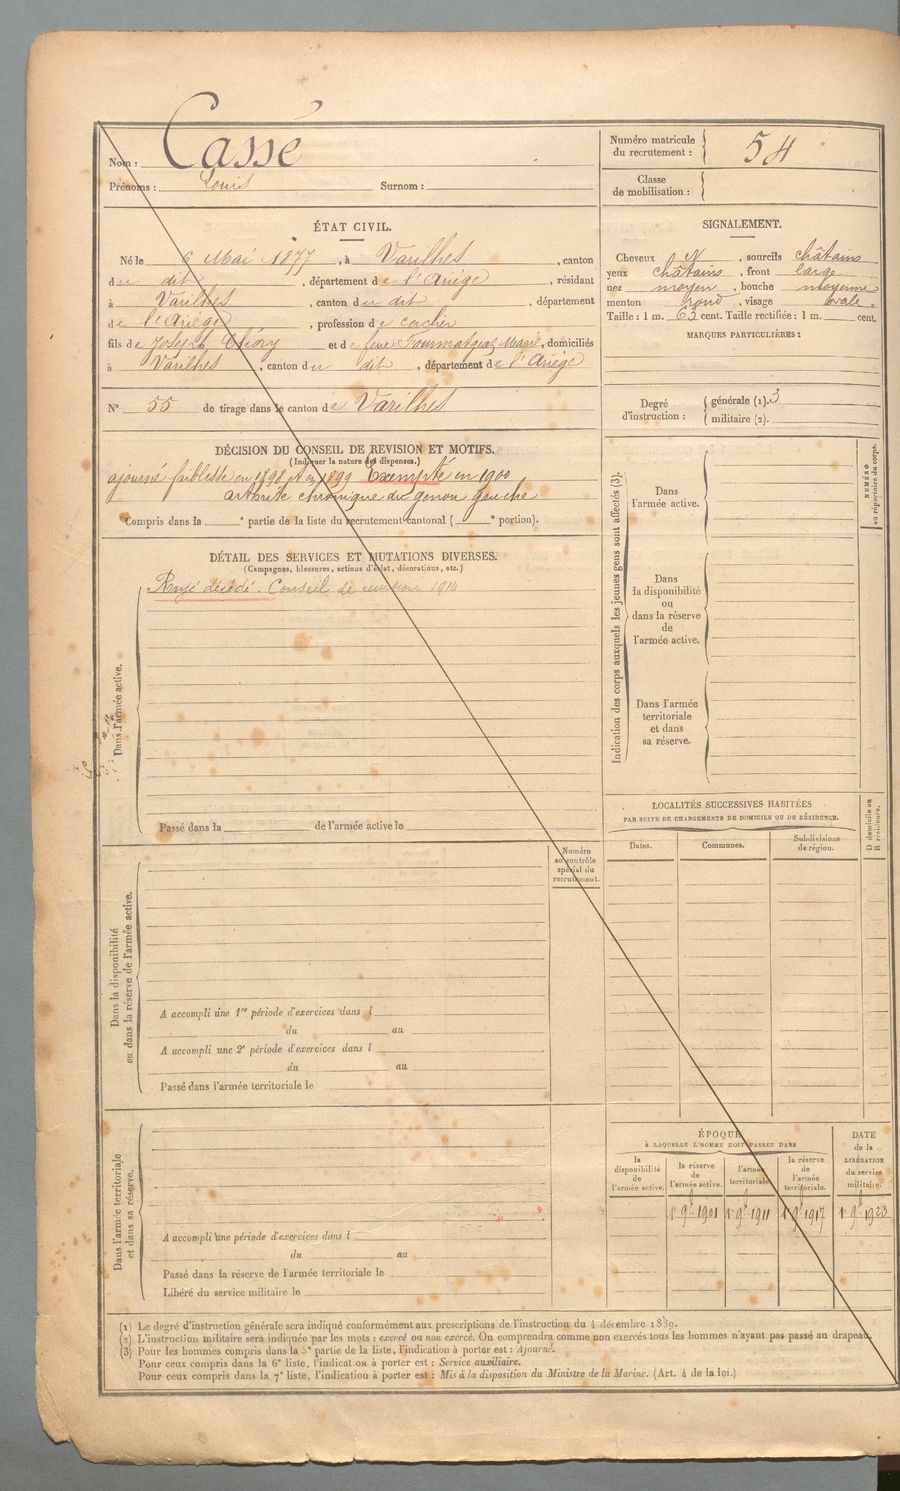 Nom : Cassé
Prénoms : Louis Surnom :
Numéro matricule
du recrutement : 54
Classe
de mobilisation :
ÉTAT CIVIL.
Né le 6 Mai 1877, à Varilhes, canton
du dit, département de l'Ariège, résidant
à Varilhes, canton du dit, département
de l'Ariège, profession de cocher
fils de Joseph Théory et de feue Marie, domiciliés
à Varilhes, canton du dit, département de l'Ariège
N° 55 de tirage dans le canton de Varilhes
DÉCISION DU CONSEIL DE REVISION ET MOTIFS.
(Indiquer la nature des dispenses.)
ajourné faiblesse en 1898 et en 1899 Exempté en 1900
arthrite chronique du genou gauche
Compris dans la ° partie de la liste du recrutement cantonal ( ° portion).
DÉTAIL DES SERVICES ET MUTATIONS DIVERSES.
(Campagnes, blessures, actions d'éclat, décorations, etc.)
Rayé décédé. Conseil de revision 1914
Dans l'armée active.
Passé dans la de l'armée active le
Numéro
au contrôle
spécial du
recrutement.
Dans la disponibilité
ou dans la réserve de l'armée active.
A accompli une 1re période d'exercices dans l
du au
A accompli une 2e période d'exercices dans l
du au
Passé dans l'armée territoriale le
Dans l'armée territoriale
et dans sa réserve.
A accompli une période d'exercices dans l
du au
Passé dans la réserve de l'armée territoriale le
Libéré du service militaire le
SIGNALEMENT.
Cheveux N, sourcils châtains
yeux châtains, front large
nez moyen, bouche moyenne
menton rond, visage ovale.
Taille : 1 m. 63 cent. Taille rectifiée : 1 m. cent.
MARQUES PARTICULIÈRES :
Degré
d'instruction :
générale (1). 3
militaire (2).
Indication des corps auxquels les jeunes gens sont affectés (3).
NUMÉRO
au répertoire du corps.
Dans
l'armée active.
Dans
la disponibilité
ou
dans la réserve
de
l'armée active.
Dans l'armée
territoriale
et dans
sa réserve.
LOCALITÉS SUCCESSIVES HABITÉES
PAR SUITE DE CHANGEMENTS DE DOMICILE OU DE RÉSIDENCE.
Dates. Communes. Subdivisions
de région.
D domicile ou
R résidence.
ÉPOQUE
À LAQUELLE L'HOMME DOIT PASSER DANS
la
disponibilité
de
l'armée active.
la réserve
de
l'armée active.
l'armée
territoriale.
la réserve
de
l'armée
territoriale.
DATE
de la
LIBÉRATION
du service
militaire.
1er 9bre 1901 1er 9bre 1911 1er 9bre 1917 1er 9bre 1923
(1) Le degré d'instruction générale sera indiqué conformément aux prescriptions de l'instruction du 4 décembre 1889.
(2) L'instruction militaire sera indiquée par les mots : exercé ou non exercé. On comprendra comme non exercés tous les hommes n'ayant pas passé au drapeau.
(3) Pour les hommes compris dans la 5e partie de la liste, l'indication à porter est : Ajourné.
Pour ceux compris dans la 6e liste, l'indication à porter est : Service auxiliaire.
Pour ceux compris dans la 7e liste, l'indication à porter est : Mis à la disposition du Ministre de la Marine. (Art. 4 de la loi.)